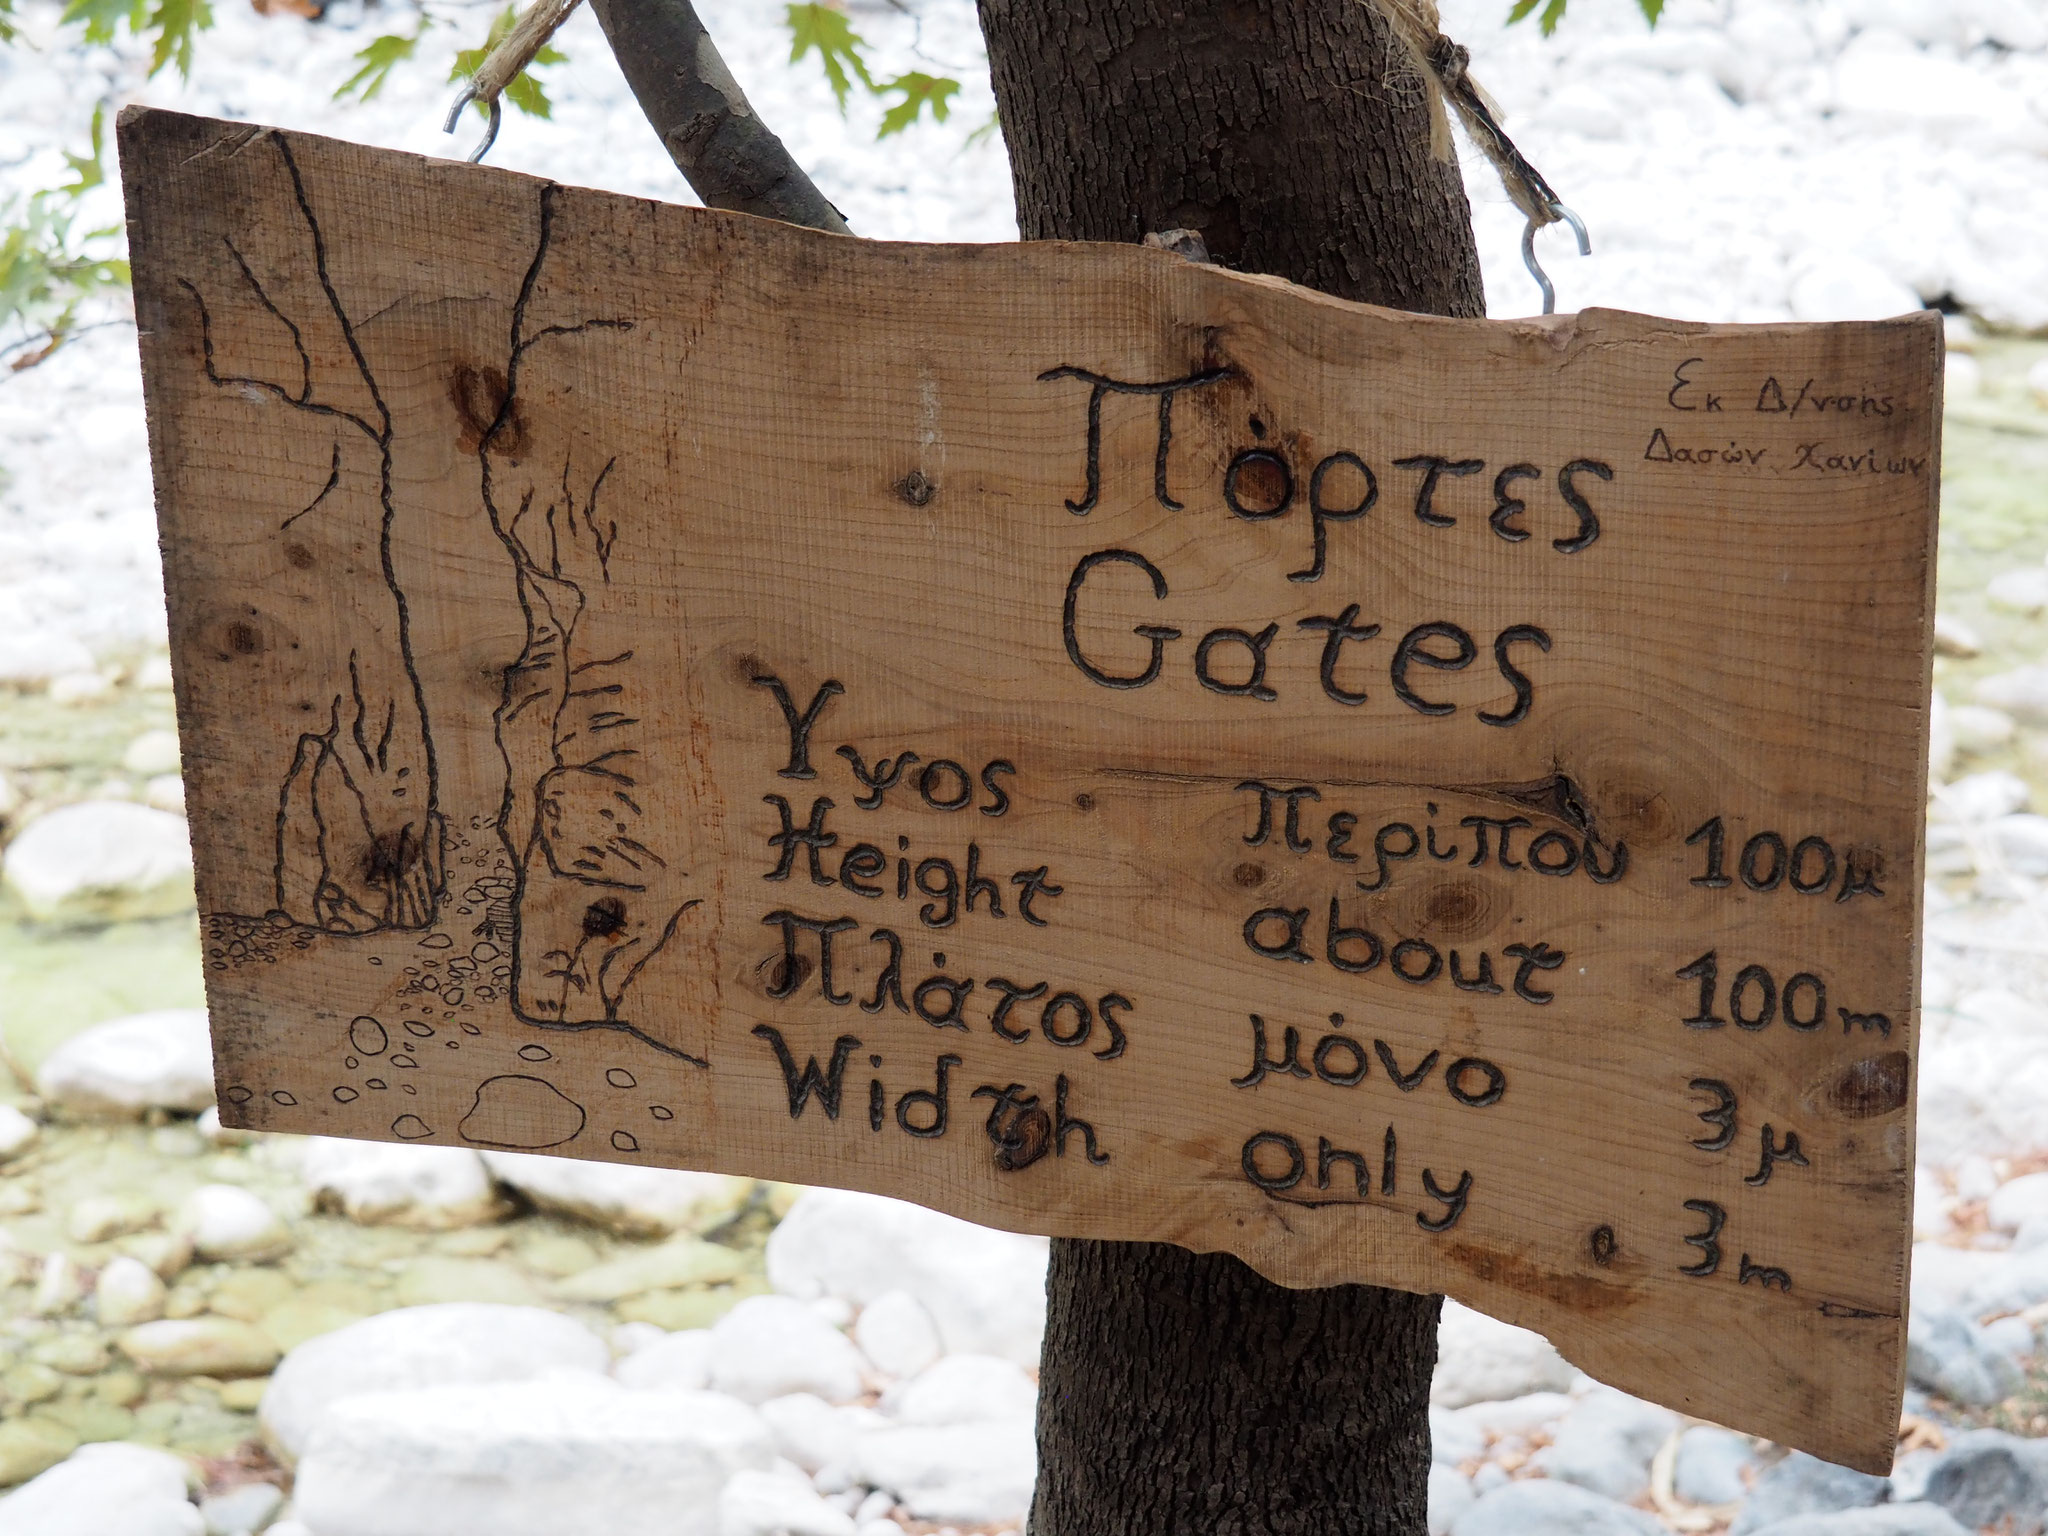 Εκ Δ/νσης
Δασών Χανίων
Πόρτες
Gates
Υψος Περίπου 100μ
Height about 100m
Πλάτος μόνο 3μ
Width only 3m